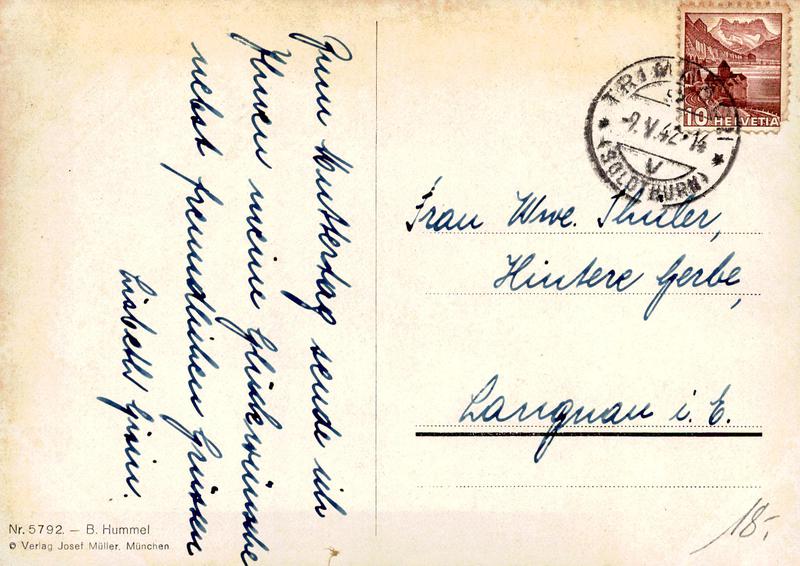 Zum Muttertag sende ich
Ihnen meine Glückwünsche
nebst freundlichen Grüssen
Lisbeth
Frau Wwe. Thuler,
Hintere Gerbe,
Langnau i. E.
HELVETIA
10
(SOLOTHURN)
Nr. 5792. — B. Hummel
© Verlag Josef Müller, München
18.-